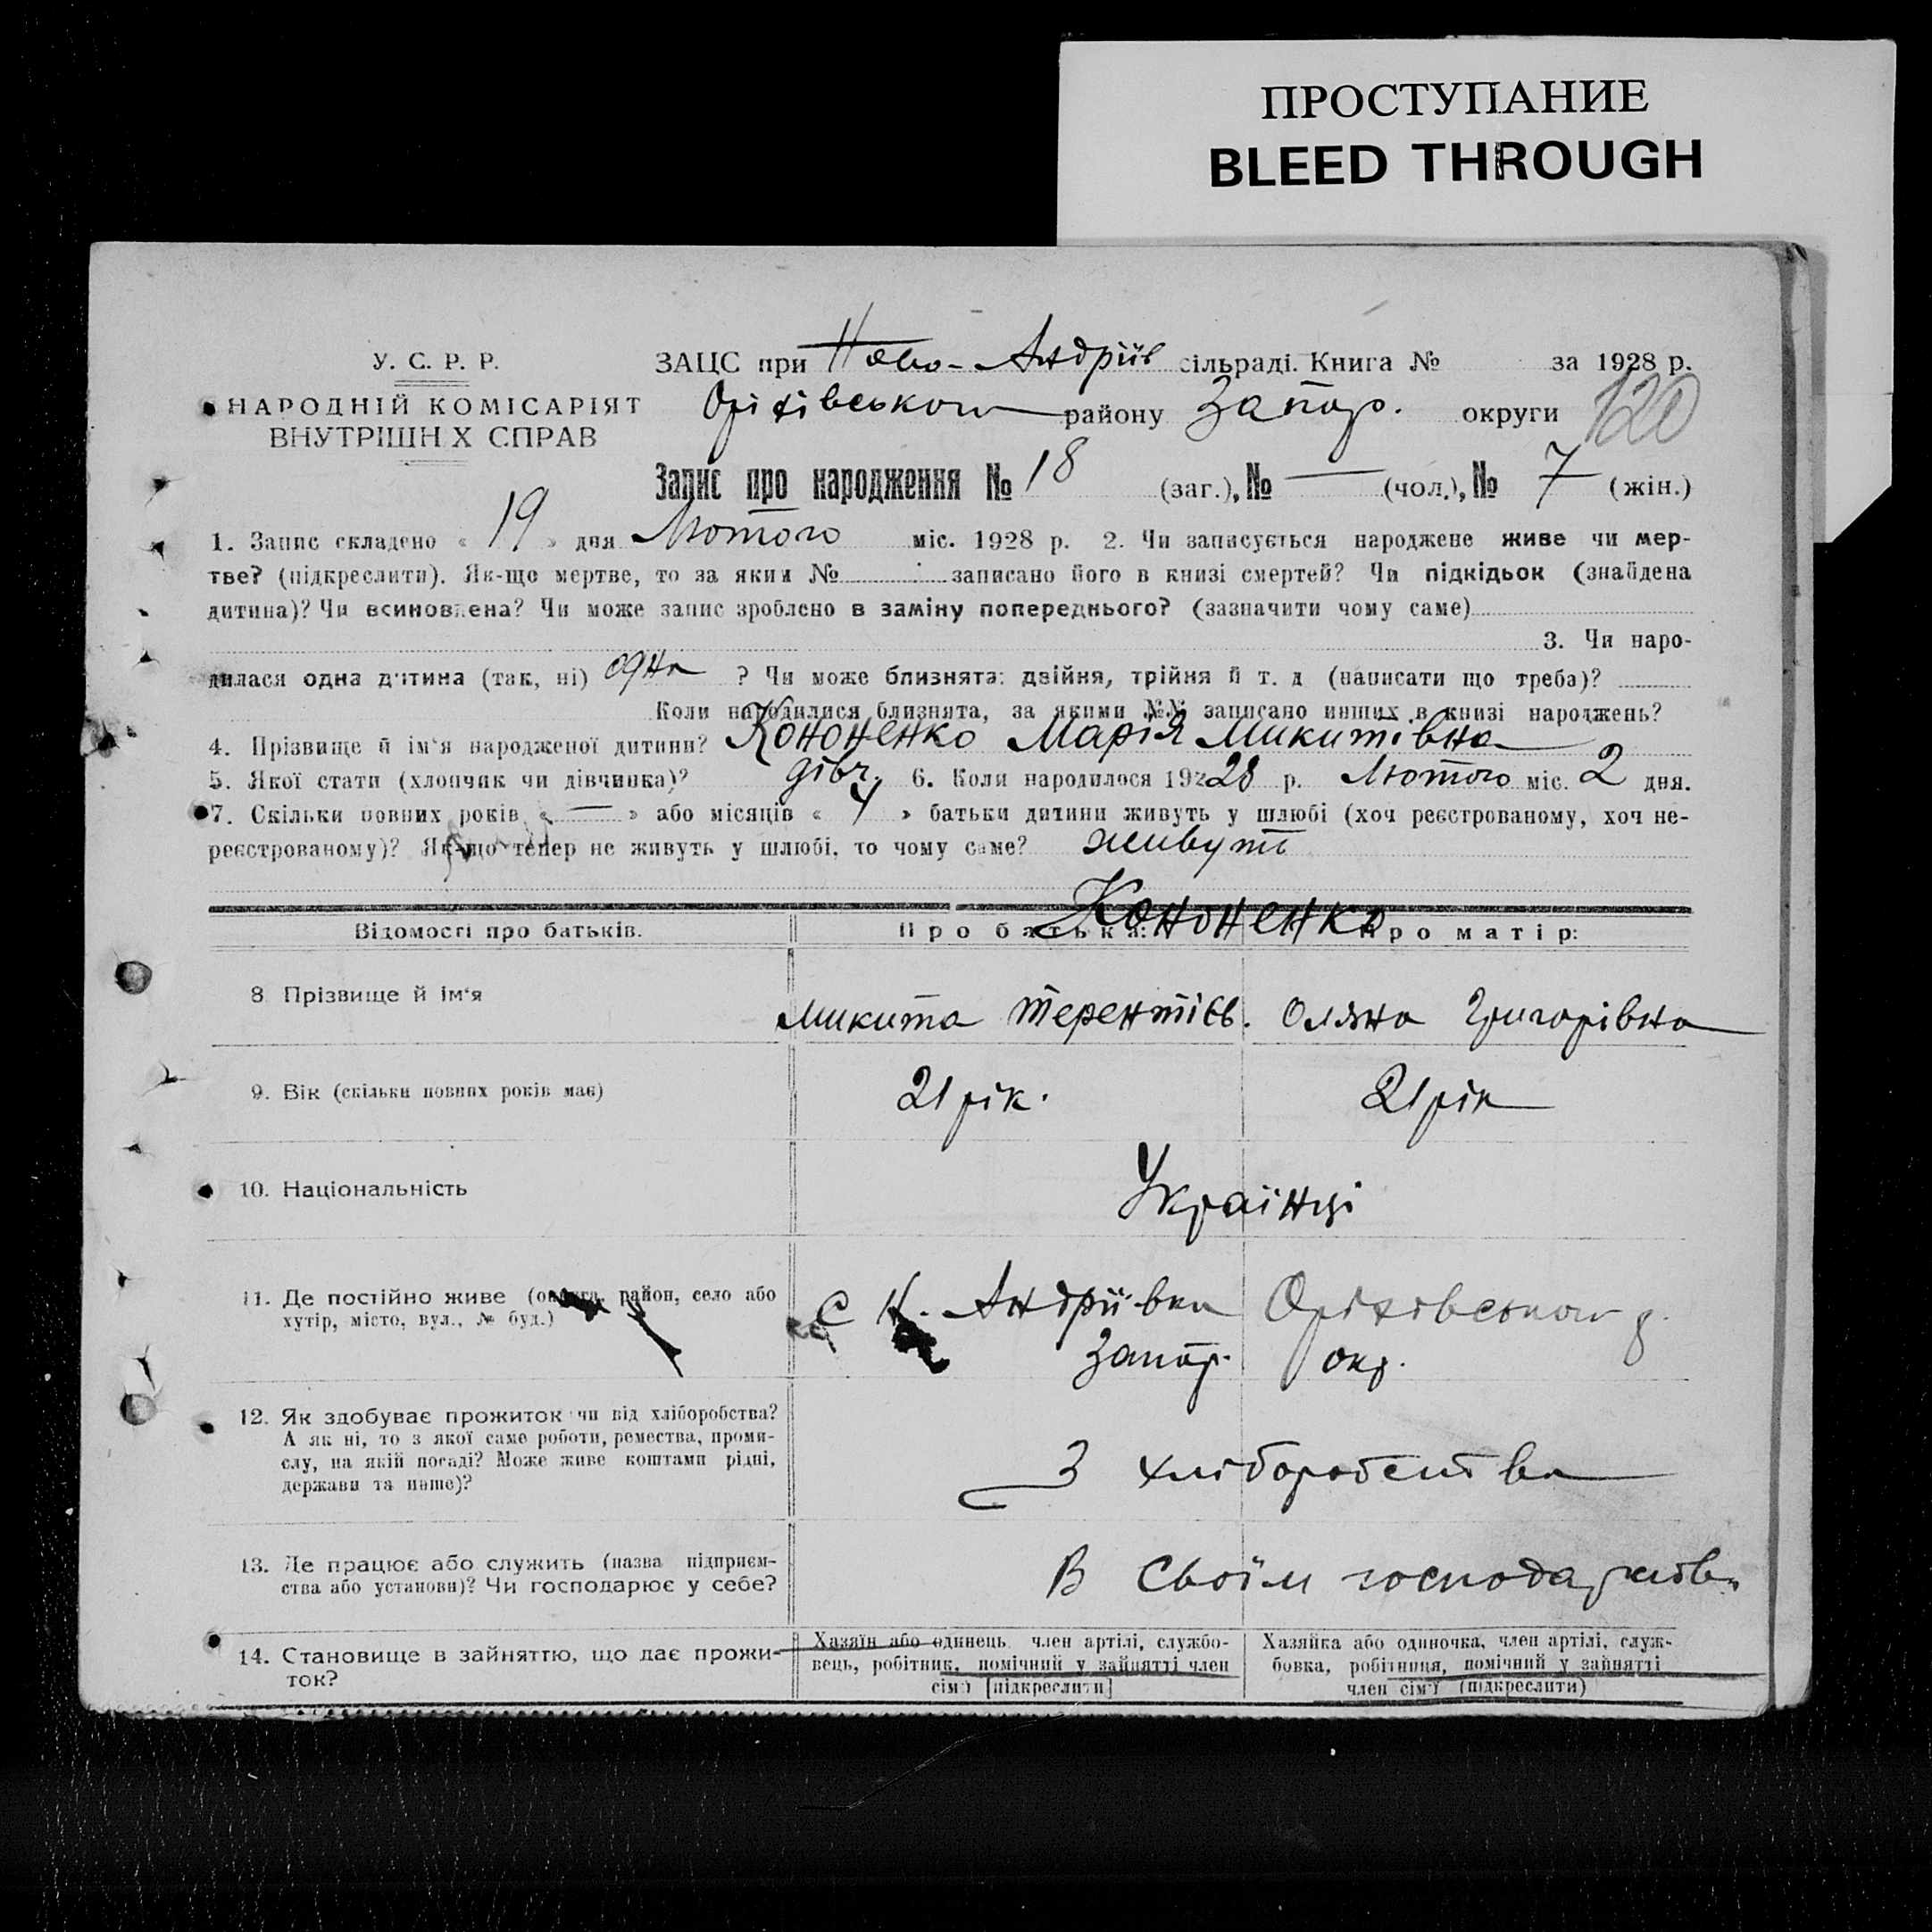 ПРОСТУПАНИЕ
BLEED THROUGH
У. С. Р. Р.
НАРОДНІЙ КОМІСАРІЯТ
ВНУТРІШН Х СПРАВ
ЗАЦС при Ново-Андріїв сільраді. Книга № за 1928 р.
Оріхівського району Запор. округи 120
Запис про народження № 18 (заг.), № — (чол.), № 7 (жін.)
1. Запис складено « 19 » дня Лютого міс. 1928 р. 2. Чи записується народжене живе чи мер-
тве? (підкреслити). Як-що мертве, то за яким № записано його в книзі смертей? Чи підкідьок (знайдена
дитина)? Чи всиновлена? Чи може запис зроблено в заміну попереднього? (зазначити чому саме)
3. Чи наро-
дилася одна дитина (так, ні) одна ? Чи може близнята: двійня, трійня й т. д (написати що треба)?
Коли народилися близнята, за якими №№ записано инших в книзі народжень?
4. Прізвище й ім'я народженої дитини? Кононенко Марія Микитівна
5. Якої стати (хлопчик чи дівчинка)? дівч. 6. Коли народилося 19228 р. Лютого міс. 2 дня.
7. Скільки повних років « — » або місяців « 4 » батьки дитини живуть у шлюбі (хоч реєстрованому, хоч не-
реєстрованому)? Як-що тепер не живуть у шлюбі, то чому саме? живуть
Кононенко
Відомості про батьків. Про батька: Про матір:
8. Прізвище й ім'я Микита Терентієв. Оляна Григорівна
9. Вік (скільки повних років має) 21 рік. 21 рік
10. Національність Українці
11. Де постійно живе (округа, район, село або
хутір, місто, вул., № буд.) с Н. Андріївка Оріхівського р.
Запор. окр.
12. Як здобуває прожиток чи від хліборобства?
А як ні, то з якої саме роботи, ремества, проми-
слу, на якій посаді? Може живе коштами рідні,
держави та инше)? З хліборобства
13. Де працює або служить (назва підприєм-
ства або установи)? Чи господарює у себе? В своїм господарстві
14. Становище в зайняттю, що дає прожи-
ток?
Хазяїн або одинець член артілі, службо-
вець, робітник, помічний у зайнятті член
сім'ї [підкреслити]
Хазяйка або одиночка, член артілі, служ-
бовка, робітниця, помічний у зайнятті
член сім'ї (підкреслити)